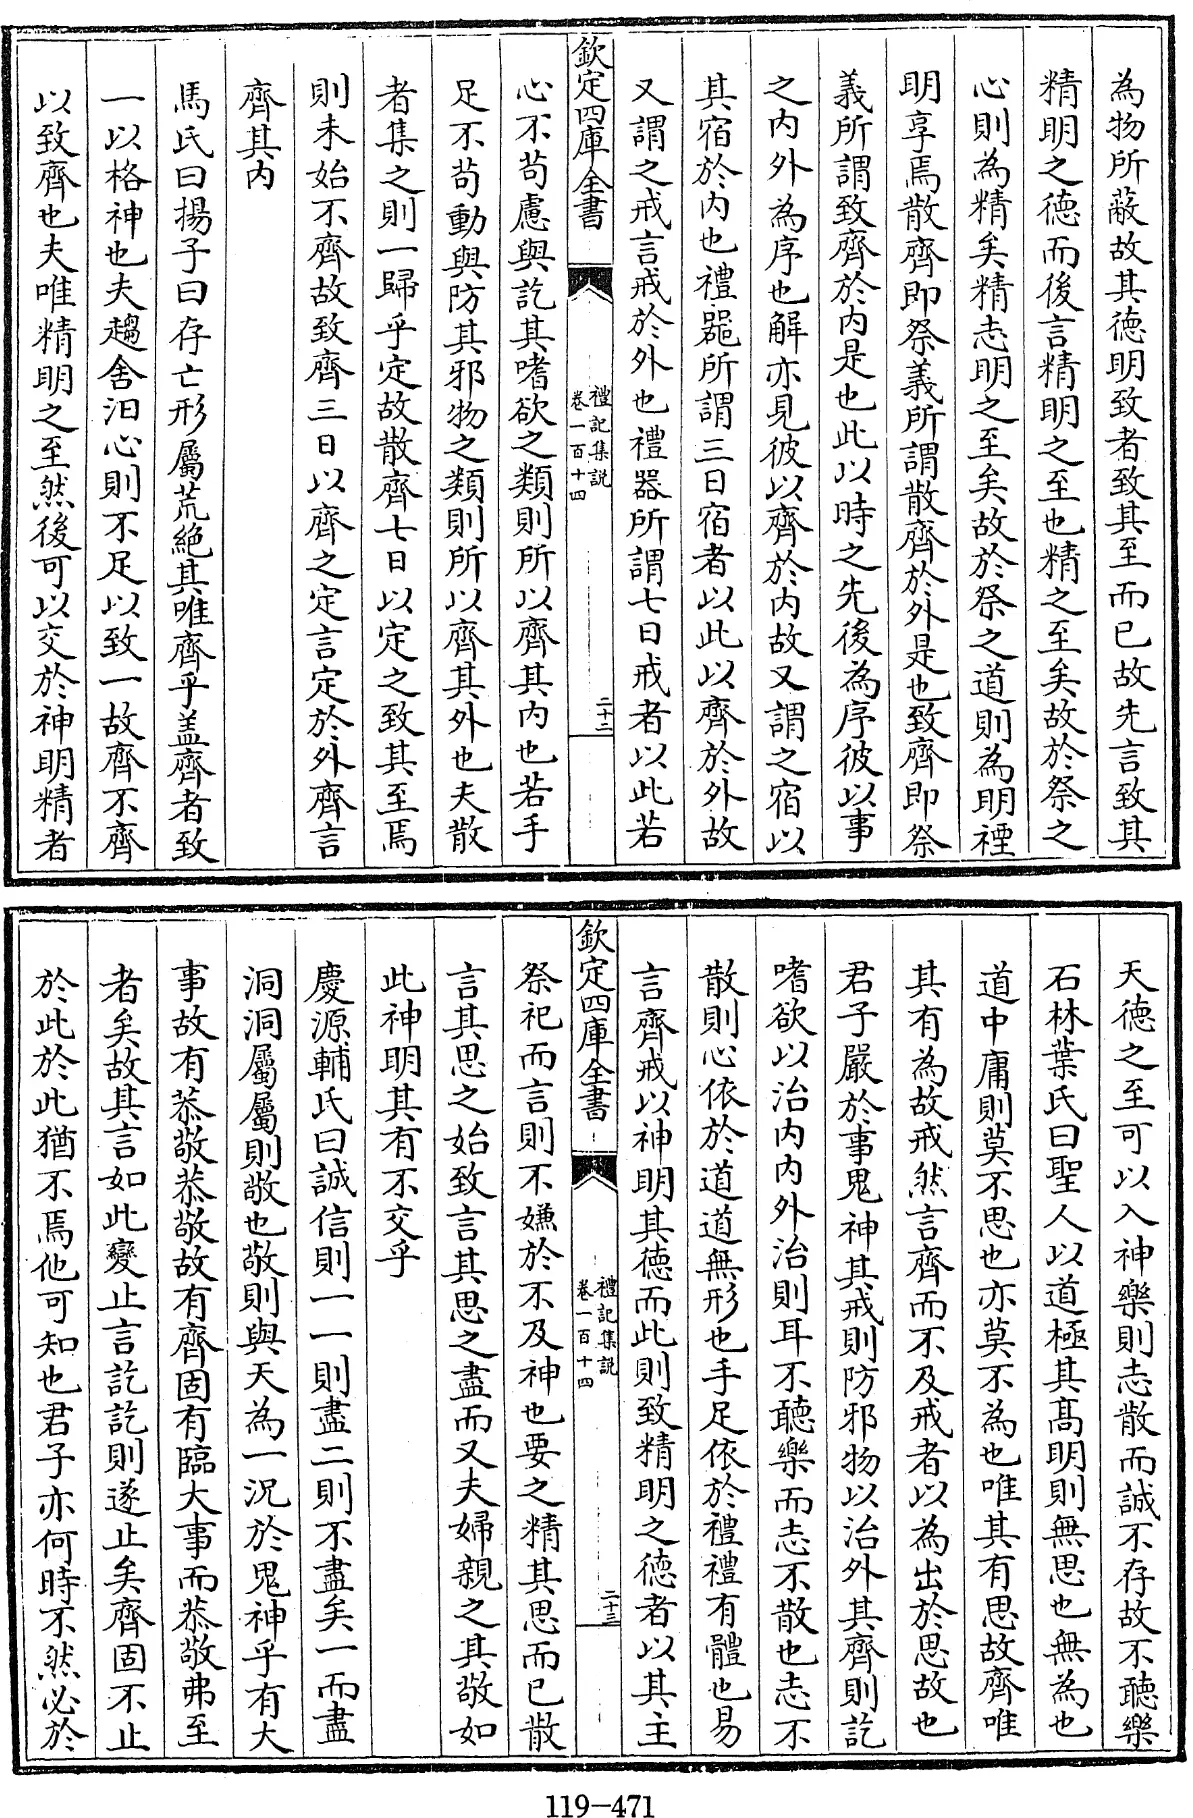 為物所蔽故其德明致者致其至而已故先言致其
精明之德而後言精明之至也精之至矣故於祭之
心則為精矣精志明之至矣故於祭之道則為明禋
明享焉散齊即祭義所謂散齊於外是也致齊即祭
義所謂致齊於内是也此以時之先後為序彼以事
之内外為序也解亦見彼以齊於内故又謂之宿以
其宿於内也禮器所謂三日宿者以此以齊於外故
又謂之戒言戒於外也禮器所謂七日戒者以此若
欽定四庫全書
禮記集説
卷一百十四
二十二
心不苟慮與訖其嗜欲之類則所以齊其内也若手
足不苟動與防其邪物之類則所以齊其外也夫散
者集之則一歸乎定故散齊七日以定之致其至焉
則未始不齊故致齊三日以齊之定言定於外齊言
齊其内
馬氏曰揚子曰存亡形屬荒絶其唯齊乎盖齊者致
一以格神也夫趨舍汩心則不足以致一故齊不齊
以致齊也夫唯精明之至然後可以交於神明精者
天德之至可以入神樂則志散而誠不存故不聽樂
石林葉氏曰聖人以道極其髙明則無思也無為也
道中庸則莫不思也亦莫不為也唯其有思故齊唯
其有為故戒然言齊而不及戒者以為出於思故也
君子嚴於事鬼神其戒則防邪物以治外其齊則訖
嗜欲以治内内外治則耳不聽樂而志不散也志不
散則心依於道道無形也手足依於禮禮有體也易
言齊戒以神明其德而此則致精明之德者以其主
欽定四庫全書
禮記集説
卷一百十四
二十三
祭祀而言則不嫌於不及神也要之精其思而已散
言其思之始致言其思之盡而又夫婦親之其敬如
此神明其有不交乎
慶源輔氏曰誠信則一一則盡二則不盡矣一而盡
洞洞屬屬則敬也敬則與天為一況於鬼神乎有大
事故有恭敬恭敬故有齊固有臨大事而恭敬弗至
者矣故其言如此變止言訖訖則遂止矣齊固不止
於此於此猶不焉他可知也君子亦何時不然必於
119-471